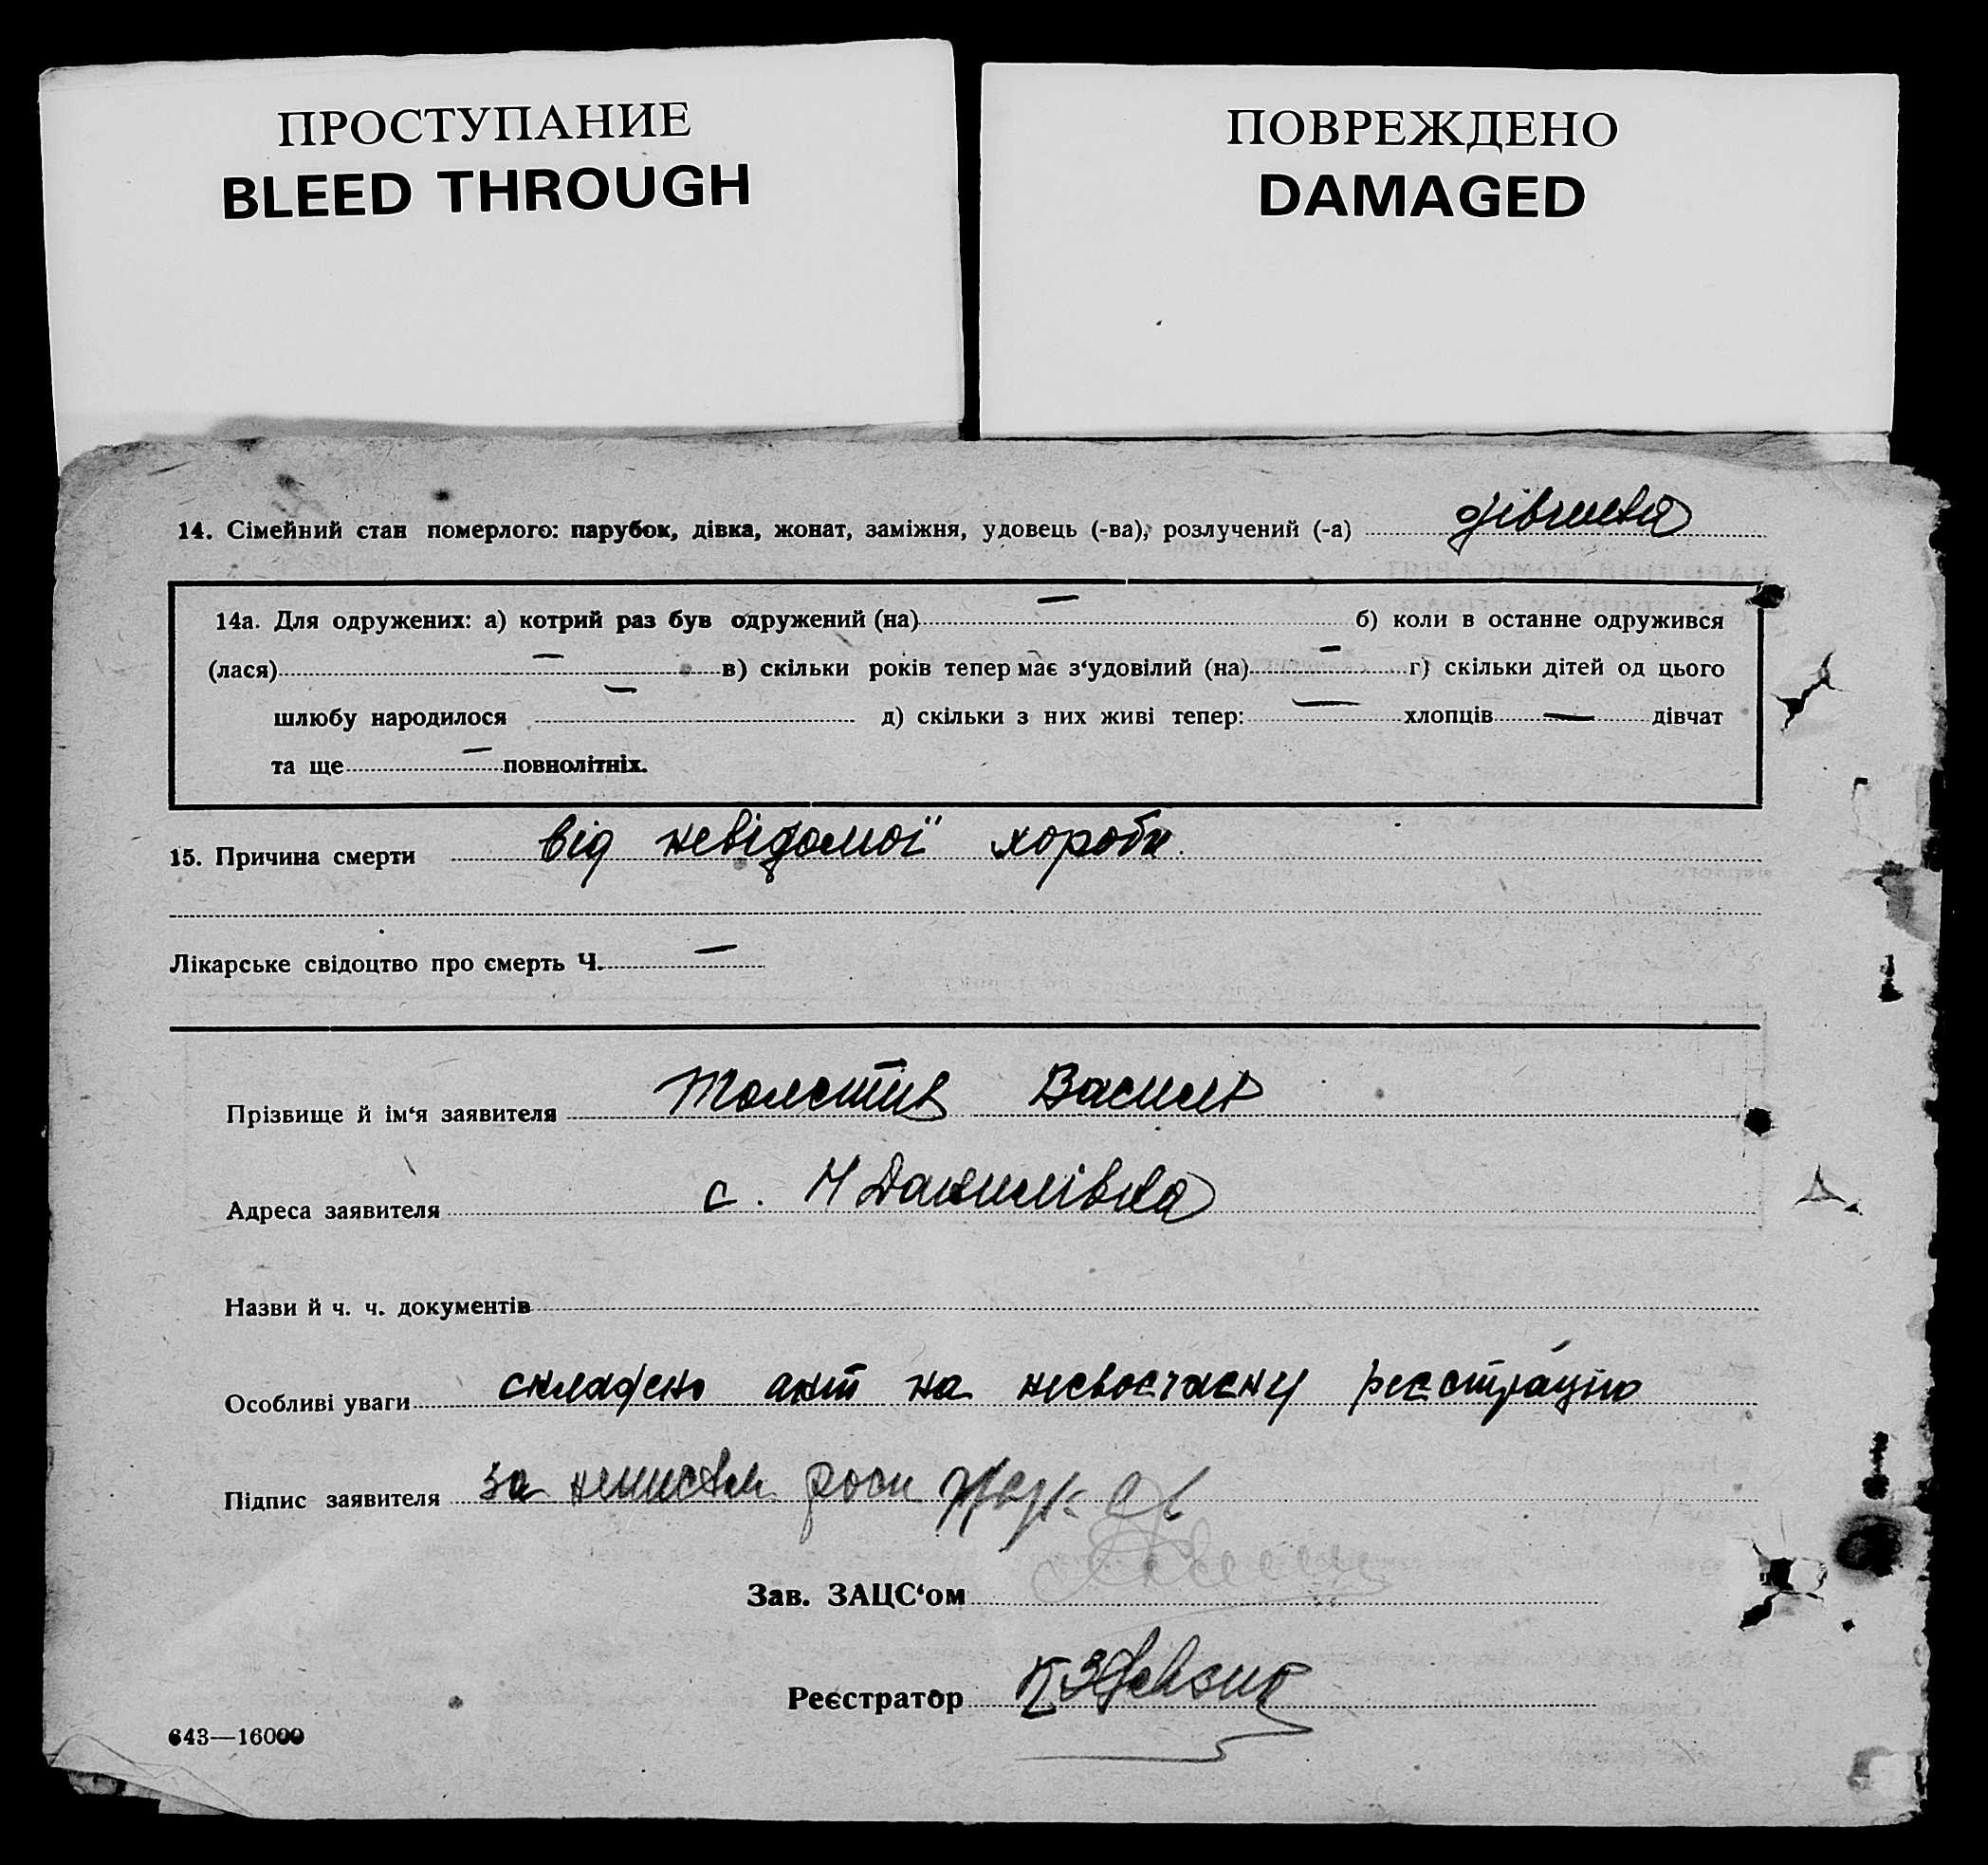 ПРОСТУПАНИЕ
BLEED THROUGH
ПОВРЕЖДЕНО
DAMAGED
14. Сімейний стан померлого: парубок, дівка, жонат, заміжня, удовець (-ва), розлучений (-а) дівчина
14а. Для одружених: а) котрий раз був одружений (на) — б) коли в останне одружився
(лася) — в) скільки років тепер має з‘удовілий (на) — г) скільки дітей од цього
шлюбу народилося — д) скільки з них живі тепер: — хлопців — дівчат
та ще — повнолітніх.
15. Причина смерти від невідомої хороби.
Лікарське свідоцтво про смерть Ч. —
Прізвище й ім‘я заявителя Толстий Василь
Адреса заявителя с. Н Данилівка
Назви й ч. ч. документів
Особливі уваги складено акт на несвоєчасну реєстрацію
Підпис заявителя за неписьм
Зав. ЗАЦС‘ом
Реєстратор
643—16000